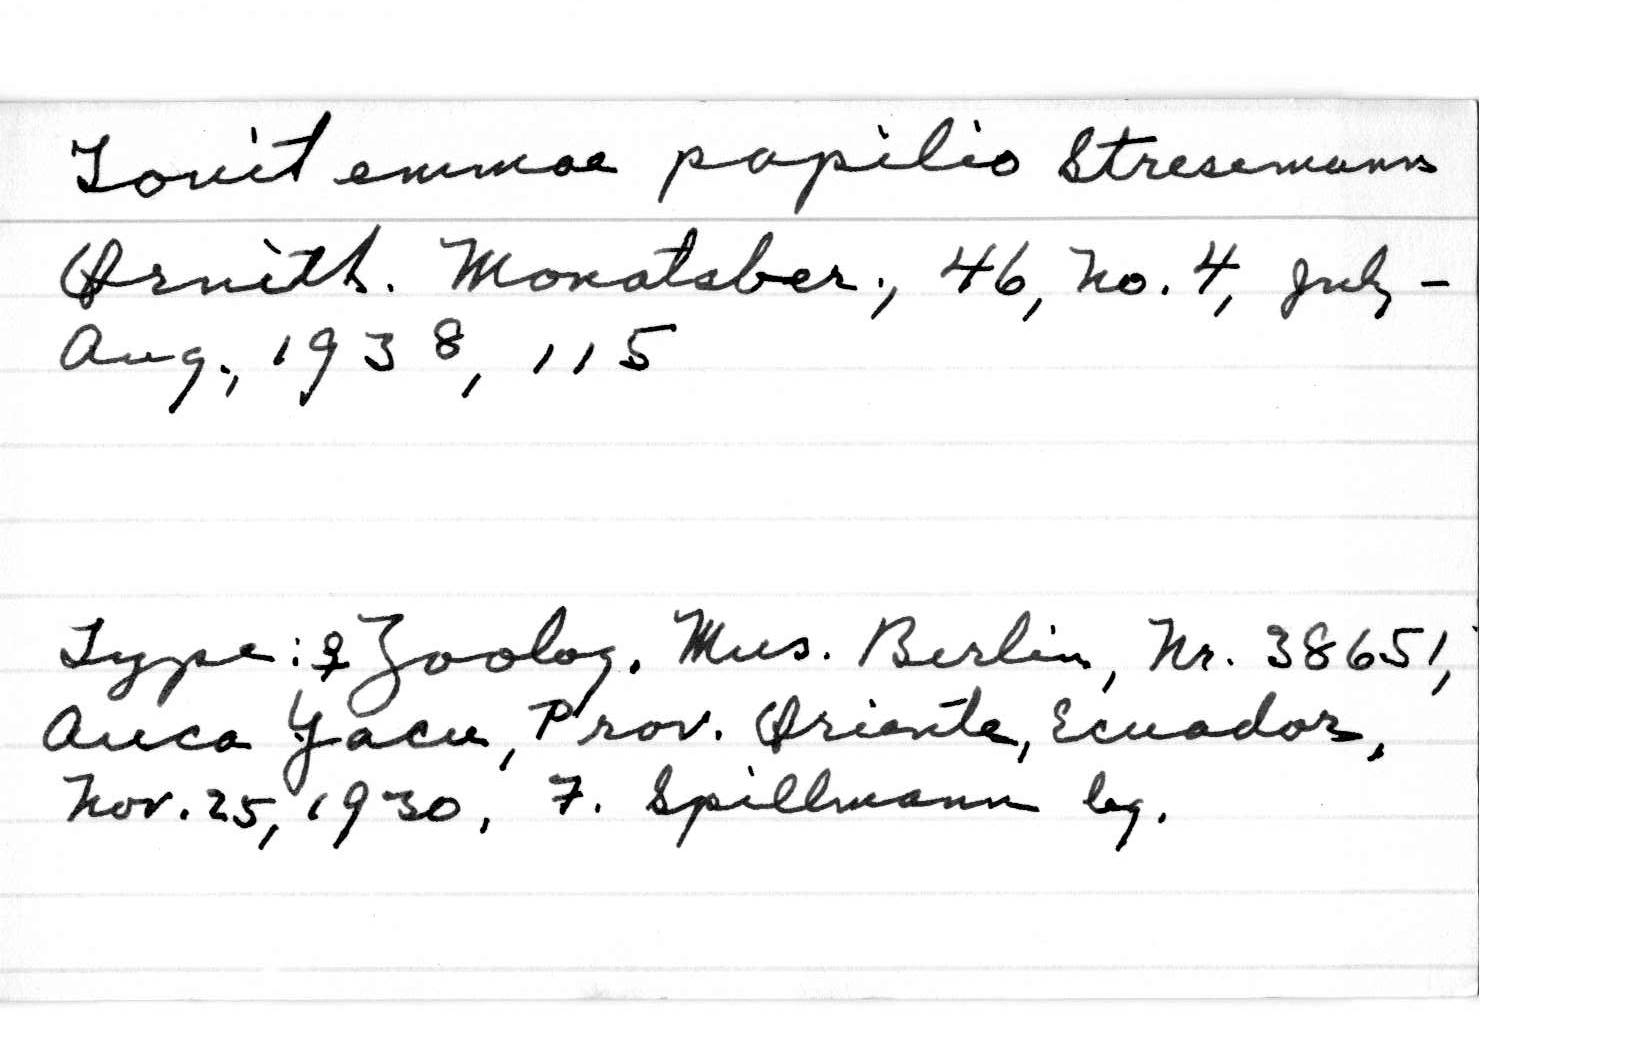 Touit emmae papilio Stresemann
Ornith. Monatsber., 46, No. 4, July -
Aug., 1938, 115
Type: ♀ Zoolog. Mus. Berlin, Nr. 38651,
Auca Yacu, Prov. Oriente, Ecuador,
Nov. 25, 1930, F. Spillmann leg.